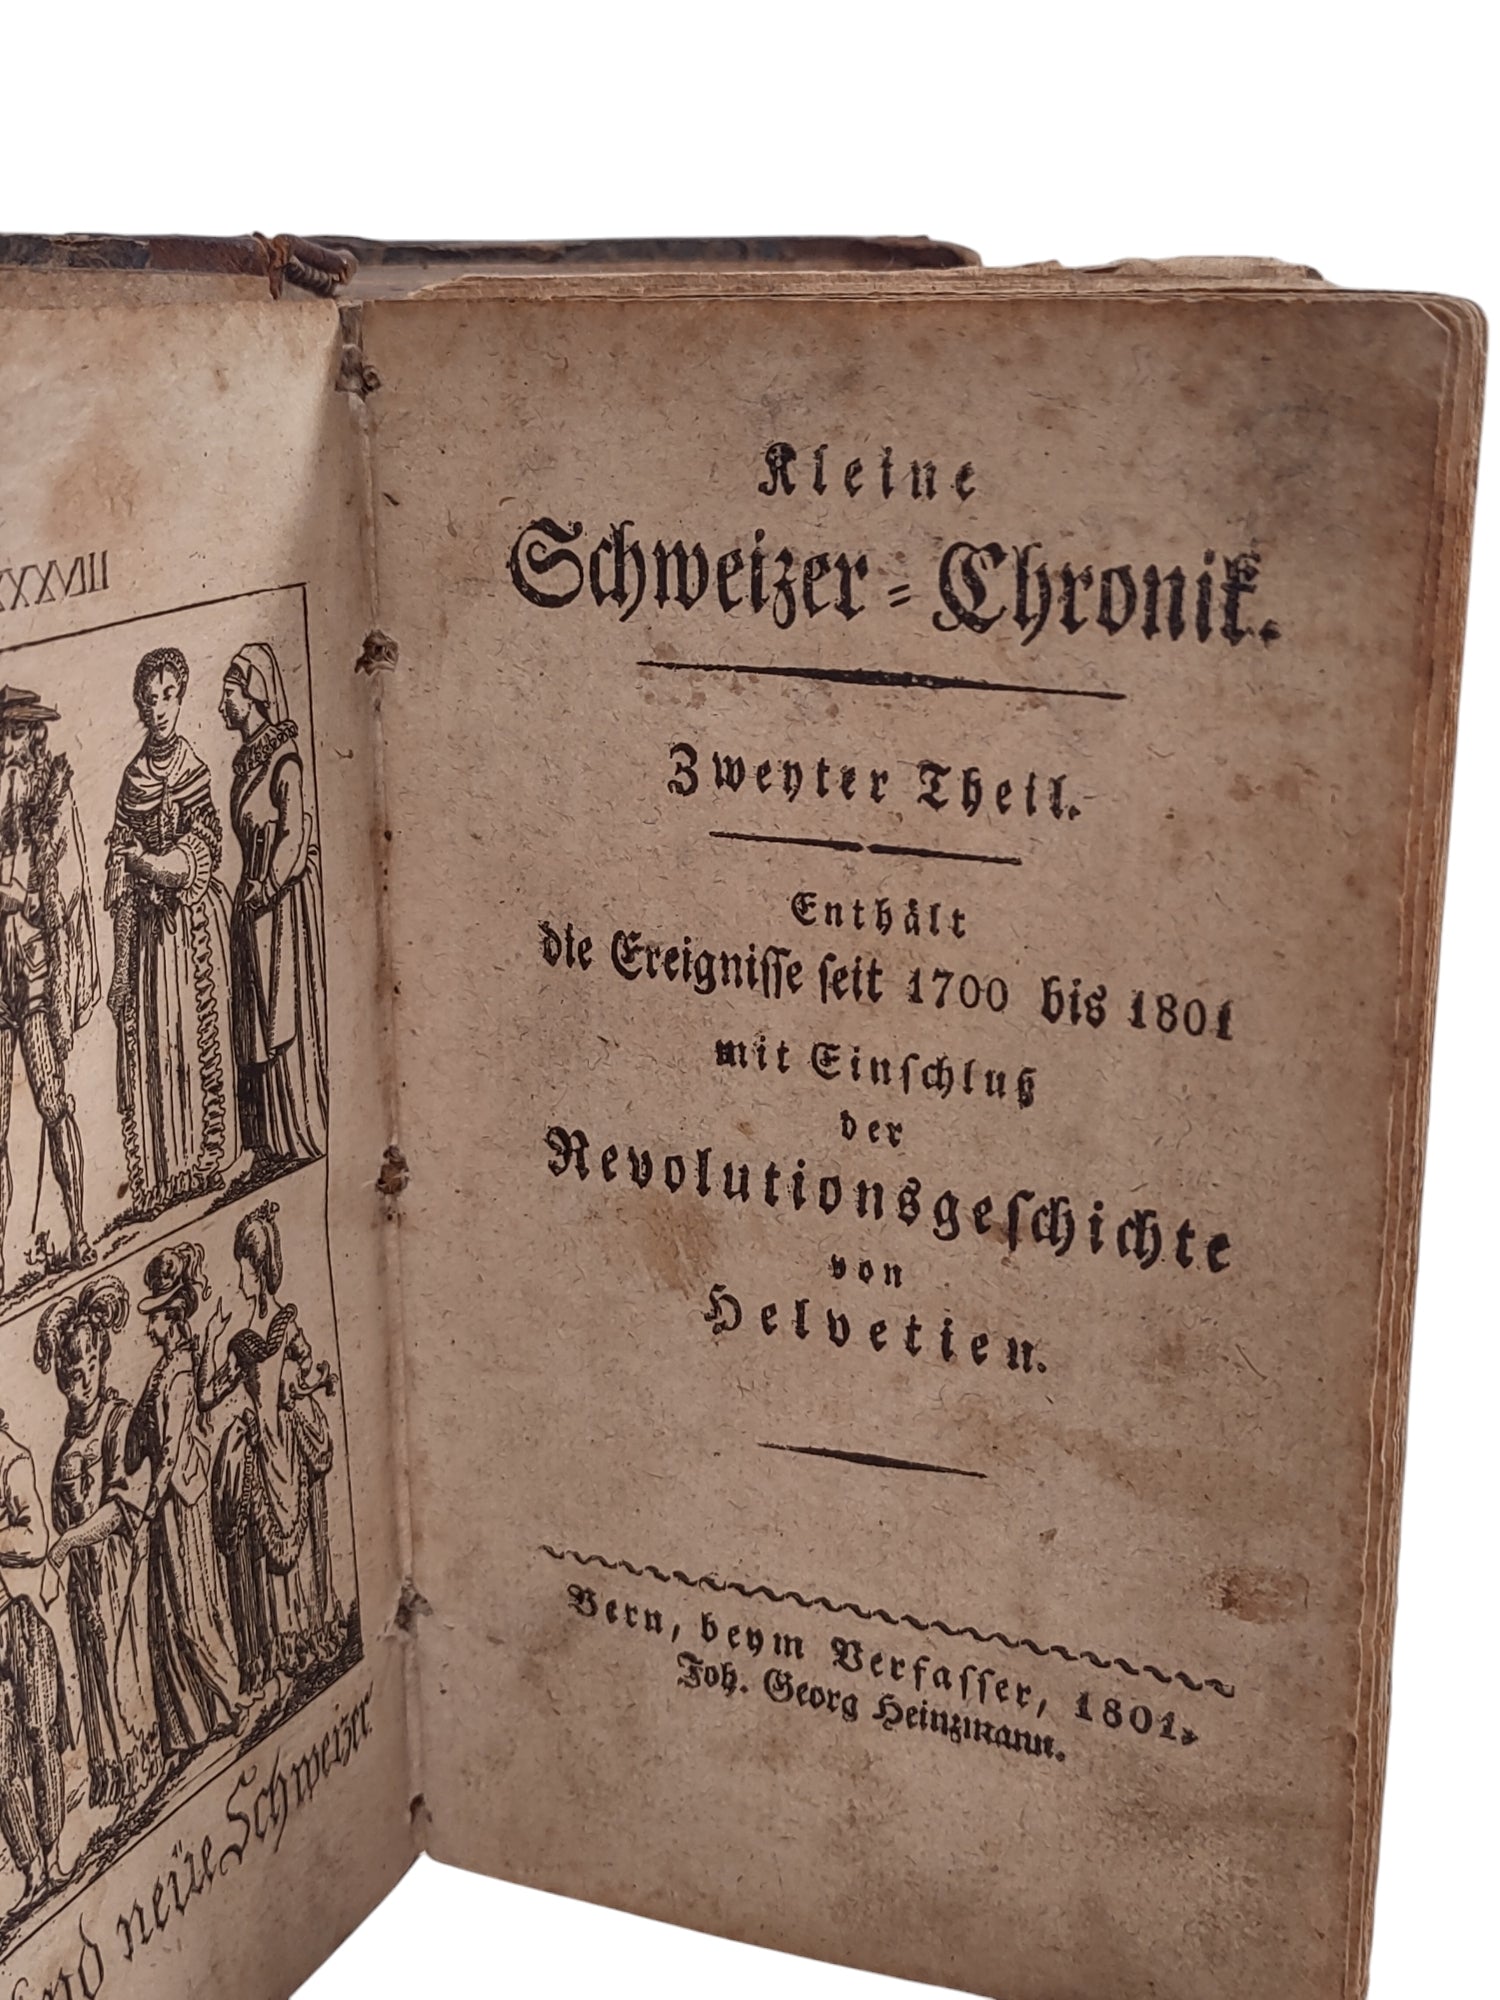 XXXVIII
und neüe Schweizer.
Kleine
Schweizer=Chronik.
Zweyter Theil.
Enthält
die Ereignisse seit 1700 bis 1801
mit Einschluß
der
Revolutionsgeschichte
von
Helvetien.
Bern, beym Verfasser, 1801.
Joh. Georg Heinzmann.